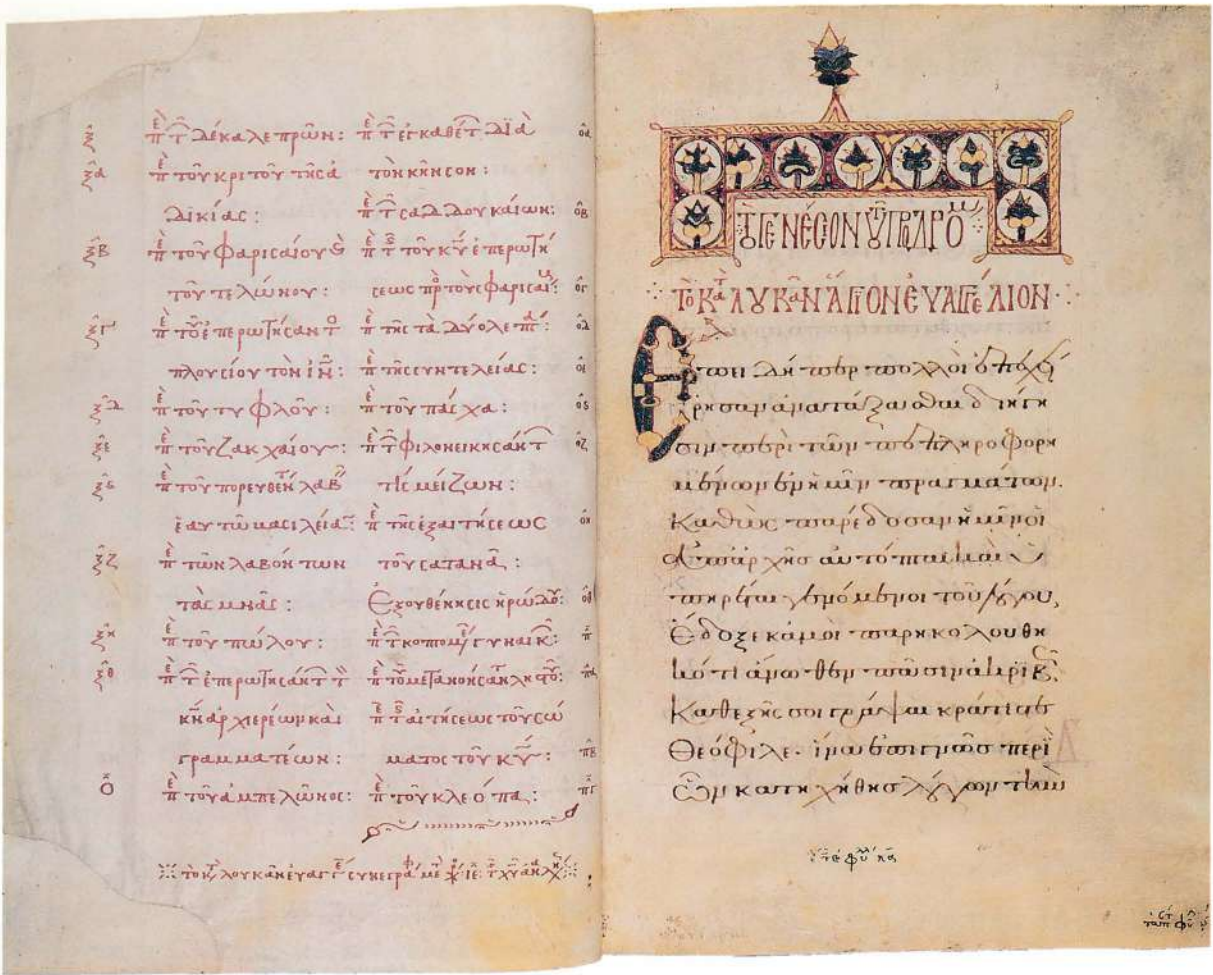 ξ̂ ἐπὶ τ δέκα λεπρῶν:
ξα ἐπὶ τοῦ κριτοῦ τῆς ἀ
δικίας:
ξβ ἐπὶ τοῦ φαρισαίου
τοῦ τελώνου:
ξγ ἐπερωτήσαντ
πλουσίου τὸν ιν:
ξδ ἐπὶ τοῦ τυφλοῦ:
ξε ἐπὶ τοῦ ζακχαίου:
ξς ἐπὶ τοῦ πορευθεν λαβ
ἑαυτῶ βασιλεία:
ξζ ἐπὶ τῶν λαβόντων
τὰς μνᾶς:
ξη ἐπὶ τοῦ πώλου:
ξθ ἐπὶ τ ἐπερωτησάντ τ
κν ἀρχιερέων καὶ
γραμματέων:
ο ἐπὶ τοῦ ἀμπελῶνος:
ἐπὶ τ ἐγκαθέτ διὰ οα
τὸν κῆνσον:
ἐπὶ τ σαδδουκαίων: οβ
ἐπὶ τ τοῦ κυ ἐπερωτή
σεως πρ τοὺς φαρισαι: ογ
ἐπὶ τῆς τὰ δύο λεπτ: οδ
ἐπὶ τῆς συντελείας: οε
ἐπὶ τοῦ πάσχα: ος
ἐπὶ τ φιλονεικησάντ οζ
τίς μείζων:
ἐπὶ τῆς ἐξαιτήσεως οη
τοῦ σατανᾶ:
Ἐξουθένησις ἡρώδου: οθ
ἐπὶ τ κοπτομ γυναικ: π
ἐπὶ τοῦ μετανοήσαντ ληστοῦ: πα
ἐπὶ τ αἰτήσεως τοῦ σώ
ματος τοῦ κυ: πβ
ἐπὶ τοῦ κλεόπα: πγ
τὸ κτ λουκᾶν εὐαγγ συνεγρά με χρ ιε τ χυ αναλ
τὸ γενέσιον τοῦ προδρό
τὸ κατ λουκᾶν ἅγιον εὐαγγέλιον
Ἐπειδήπερ πολλοὶ ἐπεχεί
ρησαν ἀνατάξασθαι διήγη
σιν περὶ τῶν πεπληροφορη
μένων ἐν ἡμῖν πραγμάτων.
Καθὼς παρέδοσαν ἡμῖν οἱ
ἀπαρχῆς αὐτόπται καὶ ὑ
πηρέται γενόμενοι τοῦ λόγου,
Ἔδοξε κἀμοὶ παρηκολουθη
κότι ἄνωθεν πᾶσιν ἀκριβῶς
Καθεξῆς σοι γράψαι κράτιστε
Θεόφιλε. ἵνα ἐπιγνῶς περὶ
Ὧν κατηχήθης λόγων τὴν